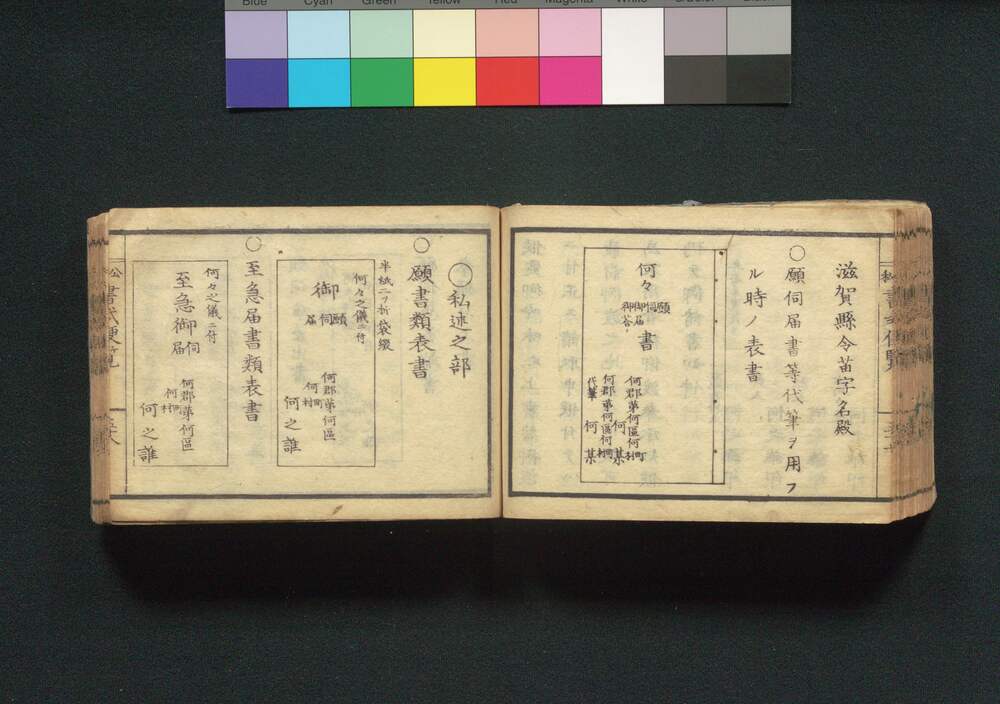 Blue Cyan Green Yellow Red Magenta White
滋賀縣令苗字名殿
○願伺届書等代筆ヲ用フ
ル時ノ表書
何々
願
伺
御届
書
何郡第何區何町村
何某
何郡第何區何町村
代筆
何某
○私述之部
○願書類表書
半紙二ツ折袋綴
何々之儀ニ付
御
願
伺
届
何郡第何區
何町村
何之誰
○至急届書類表書
何々之儀ニ付
至急御
伺
届
何郡第何區
何町村
何之誰